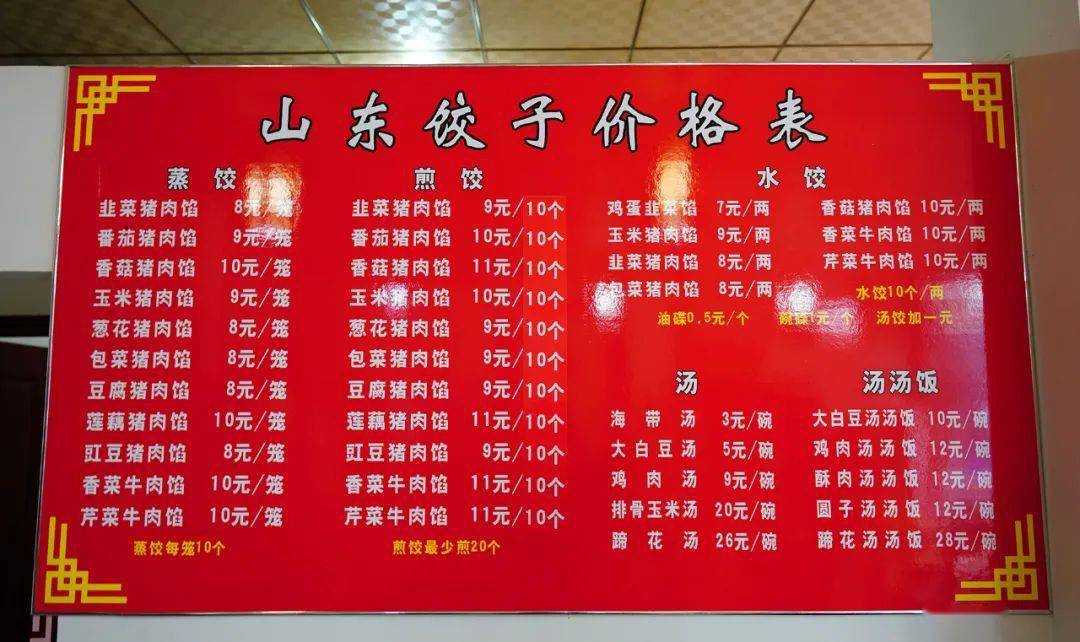 山东饺子价格表
蒸饺
韭菜猪肉馅 8元/笼
番茄猪肉馅 9元/笼
香菇猪肉馅 10元/笼
玉米猪肉馅 9元/笼
葱花猪肉馅 8元/笼
包菜猪肉馅 8元/笼
豆腐猪肉馅 8元/笼
莲藕猪肉馅 10元/笼
豇豆猪肉馅 8元/笼
香菜牛肉馅 10元/笼
芹菜牛肉馅 10元/笼
蒸饺每笼10个
煎饺
韭菜猪肉馅 9元/10个
番茄猪肉馅 10元/10个
香菇猪肉馅 11元/10个
玉米猪肉馅 10元/10个
葱花猪肉馅 9元/10个
包菜猪肉馅 9元/10个
豆腐猪肉馅 9元/10个
莲藕猪肉馅 11元/10个
豇豆猪肉馅 9元/10个
香菜牛肉馅 11元/10个
芹菜牛肉馅 11元/10个
煎饺最少煎20个
水饺
鸡蛋韭菜馅 7元/两
玉米猪肉馅 9元/两
韭菜猪肉馅 8元/两
包菜猪肉馅 8元/两
香菇猪肉馅 10元/两
香菜牛肉馅 10元/两
芹菜牛肉馅 10元/两
水饺10个/两
油碟0.5元/个 元/个 汤饺加一元
汤
海带汤 3元/碗
大白豆汤 5元/碗
鸡肉汤 9元/碗
排骨玉米汤 20元/碗
蹄花汤 26元/碗
汤汤饭
大白豆汤汤饭 10元/碗
鸡肉汤汤饭 12元/碗
酥肉汤汤饭 12元/碗
圆子汤汤饭 12元/碗
蹄花汤汤饭 28元/碗